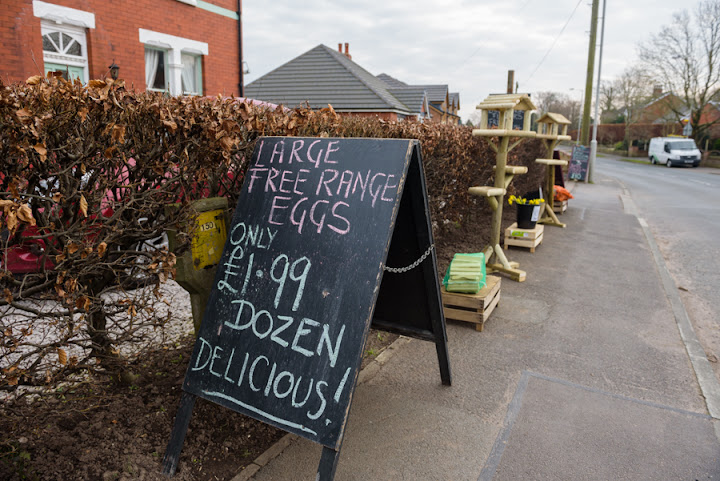 LARGE
FREE RANGE
EGGS
ONLY
£1.99
DOZEN
DELICIOUS!